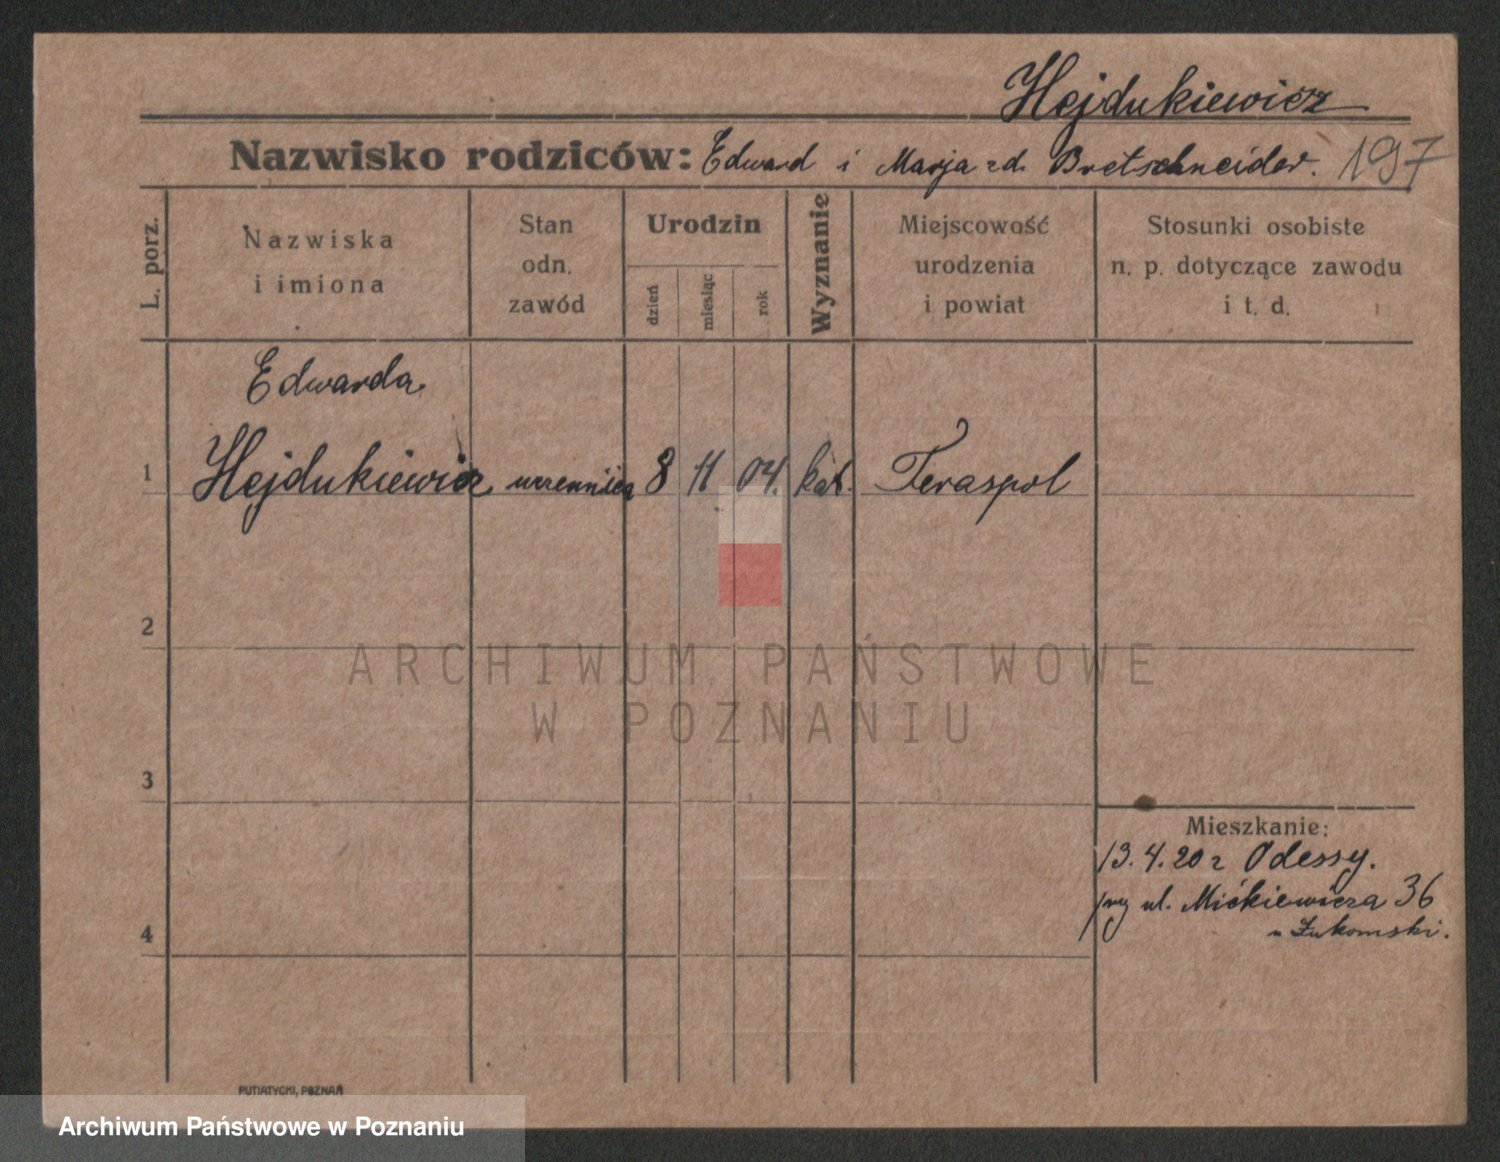 Hejdukiewicz
Nazwisko rodziców: Edward i Marja zd. Bretschneider. 197
L. porz.
Nazwiska
i imiona
Stan
odn.
zawód
Urodzin
dzień
miesiąc
rok
Wyznanie
Miejscowość
urodzenia
i powiat
Stosunki osobiste
n. p. dotyczące zawodu
i t. d.
Edwarda
1 Hejdukiewicz uczennica 8 11 04. kat. Teraspol
2
ARCHIWUM PAŃSTWOWE
W POZNANIU
3
Mieszkanie:
13.4.20 z Odessy.
przy ul. Mickiewicza 36
u Żukomski.
4
PUTIATYCKI, POZNAŃ
Archiwum Państwowe w Poznaniu